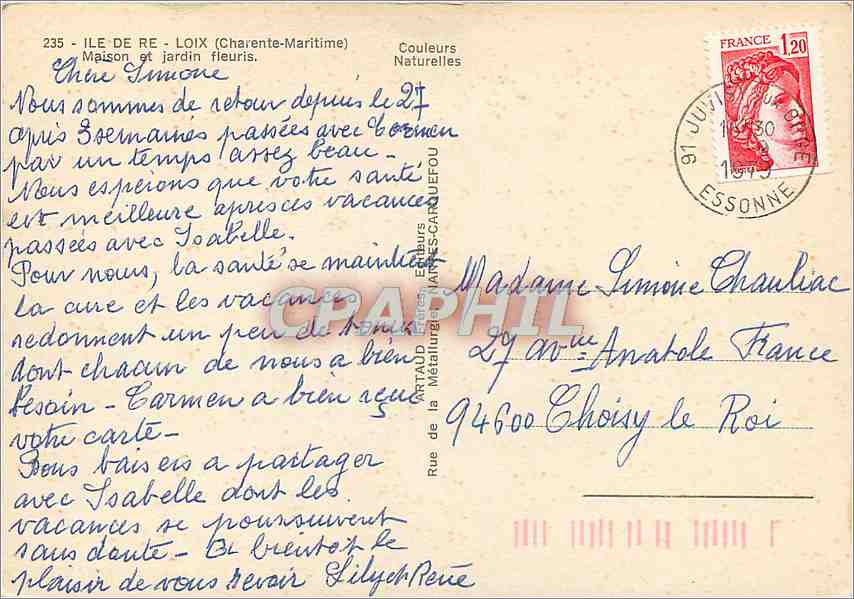 235 - ILE DE RE - LOIX (Charente-Maritime)
Maison et jardin fleuris.
Couleurs
Naturelles
Chère Simone
Nous sommes de retour depuis le 27
après 3 semaines passées avec Carmen
par un temps assez beau -
Nous espérons que votre santé
est meilleure après ces vacances
passées avec Isabelle.
Pour nous, la santé se maintient
la cure et les vacances
redonnent un peu de tonus
dont chacun de nous a bien
besoin - Carmen a bien reçu
votre carte -
Bons baisers a partager
avec Isabelle dont les
vacances se poursuivent
sans doute - Et bientot le
plaisir de vous revoir Lily et René
ARTAUD Frères, Editeurs
Rue de la Métallurgie, NANTES-CARQUEFOU
FRANCE 1,20
91 JUVISY SUR ORGE
ESSONNE
Madame Simone Chauliac
27 avnue Anatole France
94600 Choisy le Roi
CPAPHIL